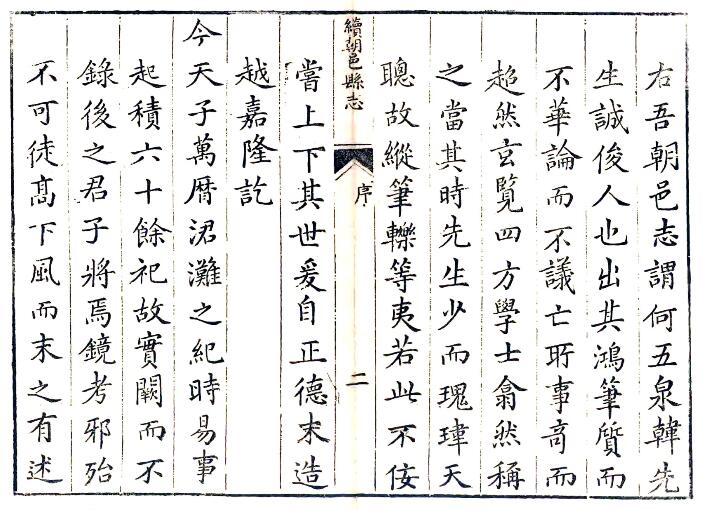 右吾朝邑志謂何五泉韓先
生誠俊人也出其鴻筆質而
不華論而不議亡所事奇而
超然玄覽四方學士翕然稱
之當其時先生少而瑰瑋天
聰故縱筆轢等夷若此不佞
續朝邑縣志
序
二
嘗上下其世爰自正德末造
越嘉隆訖
今天子萬暦涒灘之紀時易事
起積六十餘祀故實闕而不
錄後之君子將焉鏡考邪殆
不可徒髙下風而末之有述